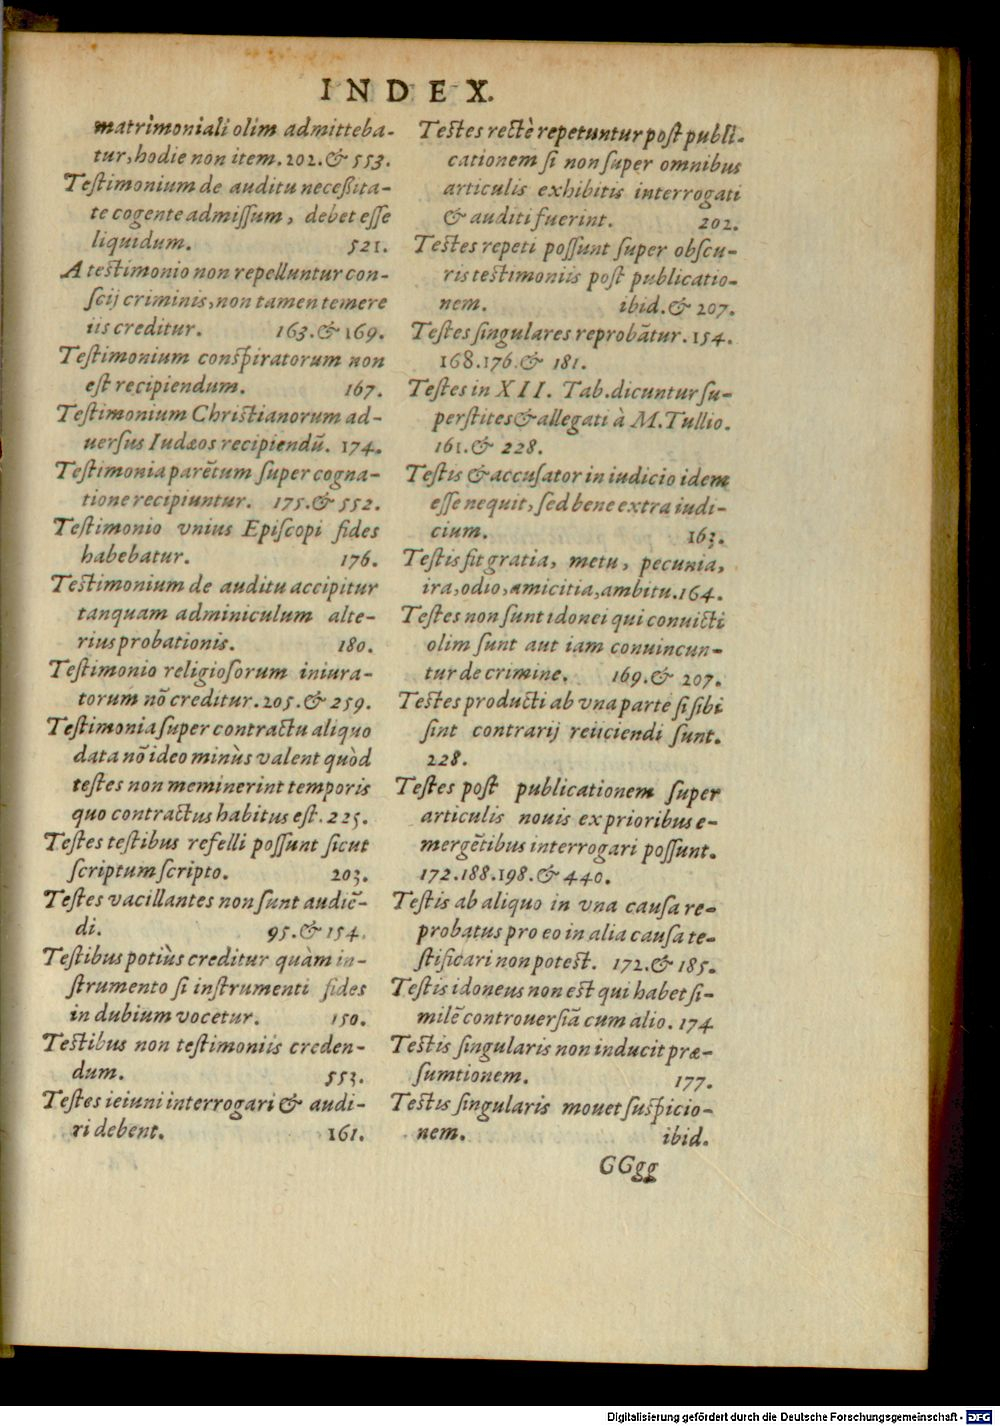 INDEX.
matrimoniali olim admitteba-
tur, hodie non item. 202. & 553.
Testimonium de auditu neceßita-
te cogente admiſſum, debet eſſe
liquidum. 521.
A testimonio non repelluntur con-
ſcij criminis, non tamen temere
iis creditur. 163. & 169.
Teſtimonium conſpiratorum non
eſt recipiendum. 167.
Teſtimonium Christianorum ad-
uerſus Iudæos recipiendũ. 174.
Teſtimonia parẽtum ſuper cogna-
tione recipiuntur. 175. & 552.
Teſtimonio vnius Epiſcopi fides
habebatur. 176.
Testimonium de auditu accipitur
tanquam adminiculum alte-
rius probationis. 180.
Teſtimonio religioſorum iniura-
torum nõ creditur. 205. & 259.
Teſtimonia ſuper contractu aliquo
data nõ ideo minùs valent quòd
testes non meminerint temporis
quo contractus habitus eſt. 225.
Teſtes teſtibus refelli poſſunt ſicut
ſcriptum ſcripto. 203.
Teſtes vacillantes non ſunt audiẽ-
di. 95. & 154.
Teſtibus potiùs creditur quàm in-
ſtrumento ſi inſtrumenti fides
in dubium vocetur. 150.
Testibus non teſtimoniis creden-
dum. 553.
Teſtes ieiuni interrogari & audi-
ri debent. 161.
Testes rectè repetuntur poſt publi-
cationem ſi non ſuper omnibus
articulis exhibitis interrogati
& auditi fuerint. 202.
Teſtes repeti poſſunt ſuper obſcu-
ris testimoniis poſt publicatio-
nem. ibid. & 207.
Teſtes ſingulares reprobãtur. 154.
168. 176. & 181.
Teſtes in XII. Tab. dicuntur ſu-
perſtites & allegati à M. Tullio.
161. & 228.
Teſtis & accuſator in iudicio idem
eſſe nequit, ſed bene extra iudi-
cium. 163.
Teſtis fit gratia, metu, pecunia,
ira, odio, amicitia, ambitu. 164.
Teſtes non ſunt idonei qui conuicti
olim ſunt aut iam conuincun-
tur de crimine. 169. & 207.
Testes producti ab vna parte ſi ſibi
ſint contrarij reiiciendi ſunt.
228.
Teſtes poſt publicationem ſuper
articulis nouis ex prioribus e-
mergẽtibus interrogari poſſunt.
172. 188. 198. & 440.
Teſtis ab aliquo in vna cauſa re-
probatus pro eo in alia cauſa te-
ſtificari non potest. 172. & 185.
Teſtis idoneus non est qui habet ſi-
milẽ controuerſiã cum alio. 174
Testis ſingularis non inducit præ-
ſumtionem. 177.
Testis ſingularis mouet ſuſpicio-
nem. ibid.
GGgg
Digitalisierung gefördert durch die Deutsche Forschungsgemeinschaft - DFG